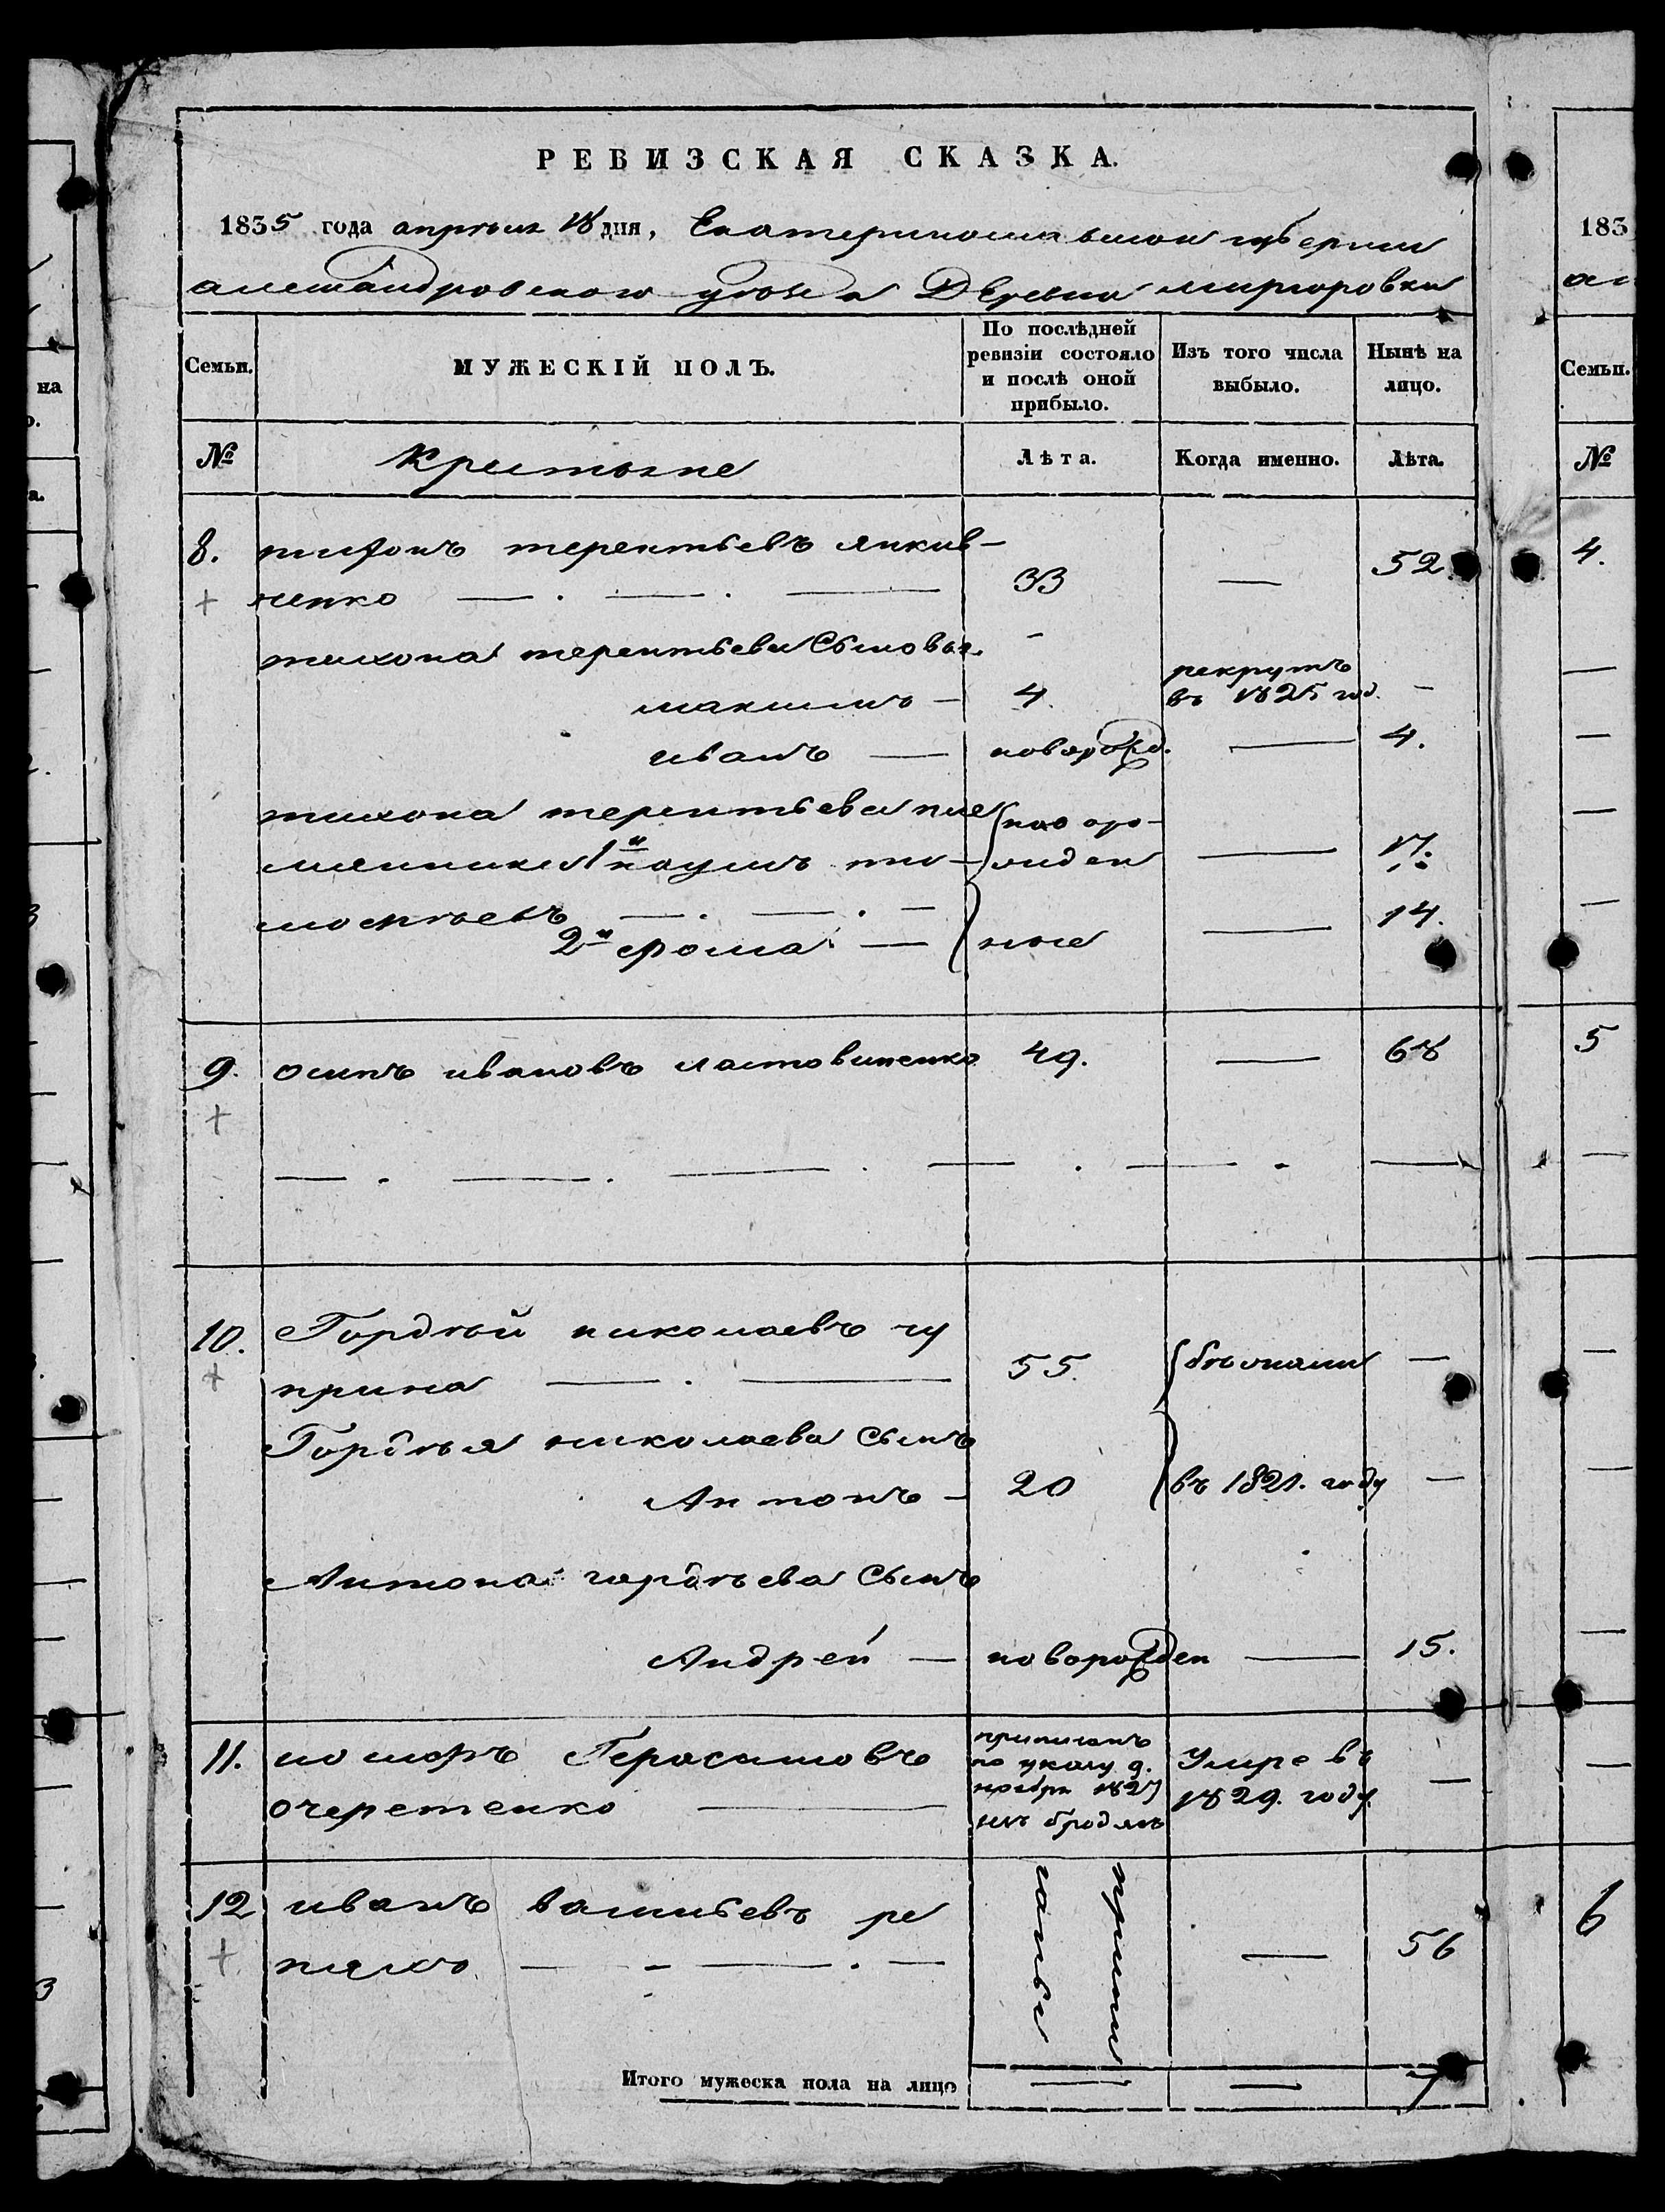 РЕВИЗСКАЯ СКАЗКА.
1835 года апреля 18 дня, Екатеринославской губернии
александровского уезда Деревни
Семьи.
МУЖЕСКІЙ ПОЛЪ.
По послѣдней ревизіи состояло и послѣ оной прибыло.
Изъ того числа выбыло.
Нынѣ на лицо.
№
Лѣта.
Когда именно.
Лѣта.
8. терентьевъ
ченко 33 — 52
тихона терентьева Сыновья
рекрутъ
максимъ — 4. въ 1825 год. —
иванъ — новорожд. — 4.
тихона терентьева пле
мянники 1й наумъ ти — новорож
мофѣевъ — 17.
2й фома — ные — 14.
9. осипъ ивановъ ластовиченко 49. — 68
10. Гордѣй николаевъ чу
прина — 55. бежали —
Гордѣя николаева Сынъ
Антонъ — 20 въ 1821. году —
Антона гордѣева Сынъ
Андрей — новорожден — 15.
11. Герасимовъ
очеретенко —
приписанъ
по указу 9.
ноября 1827
изъ бродягъ
Умре въ
1829. году. —
12 иванъ васильевъ ре
пяхъ — приписанъ — 56
Итого мужеска пола на лицо — — 7
183
Семьи.
№
4.
5
6